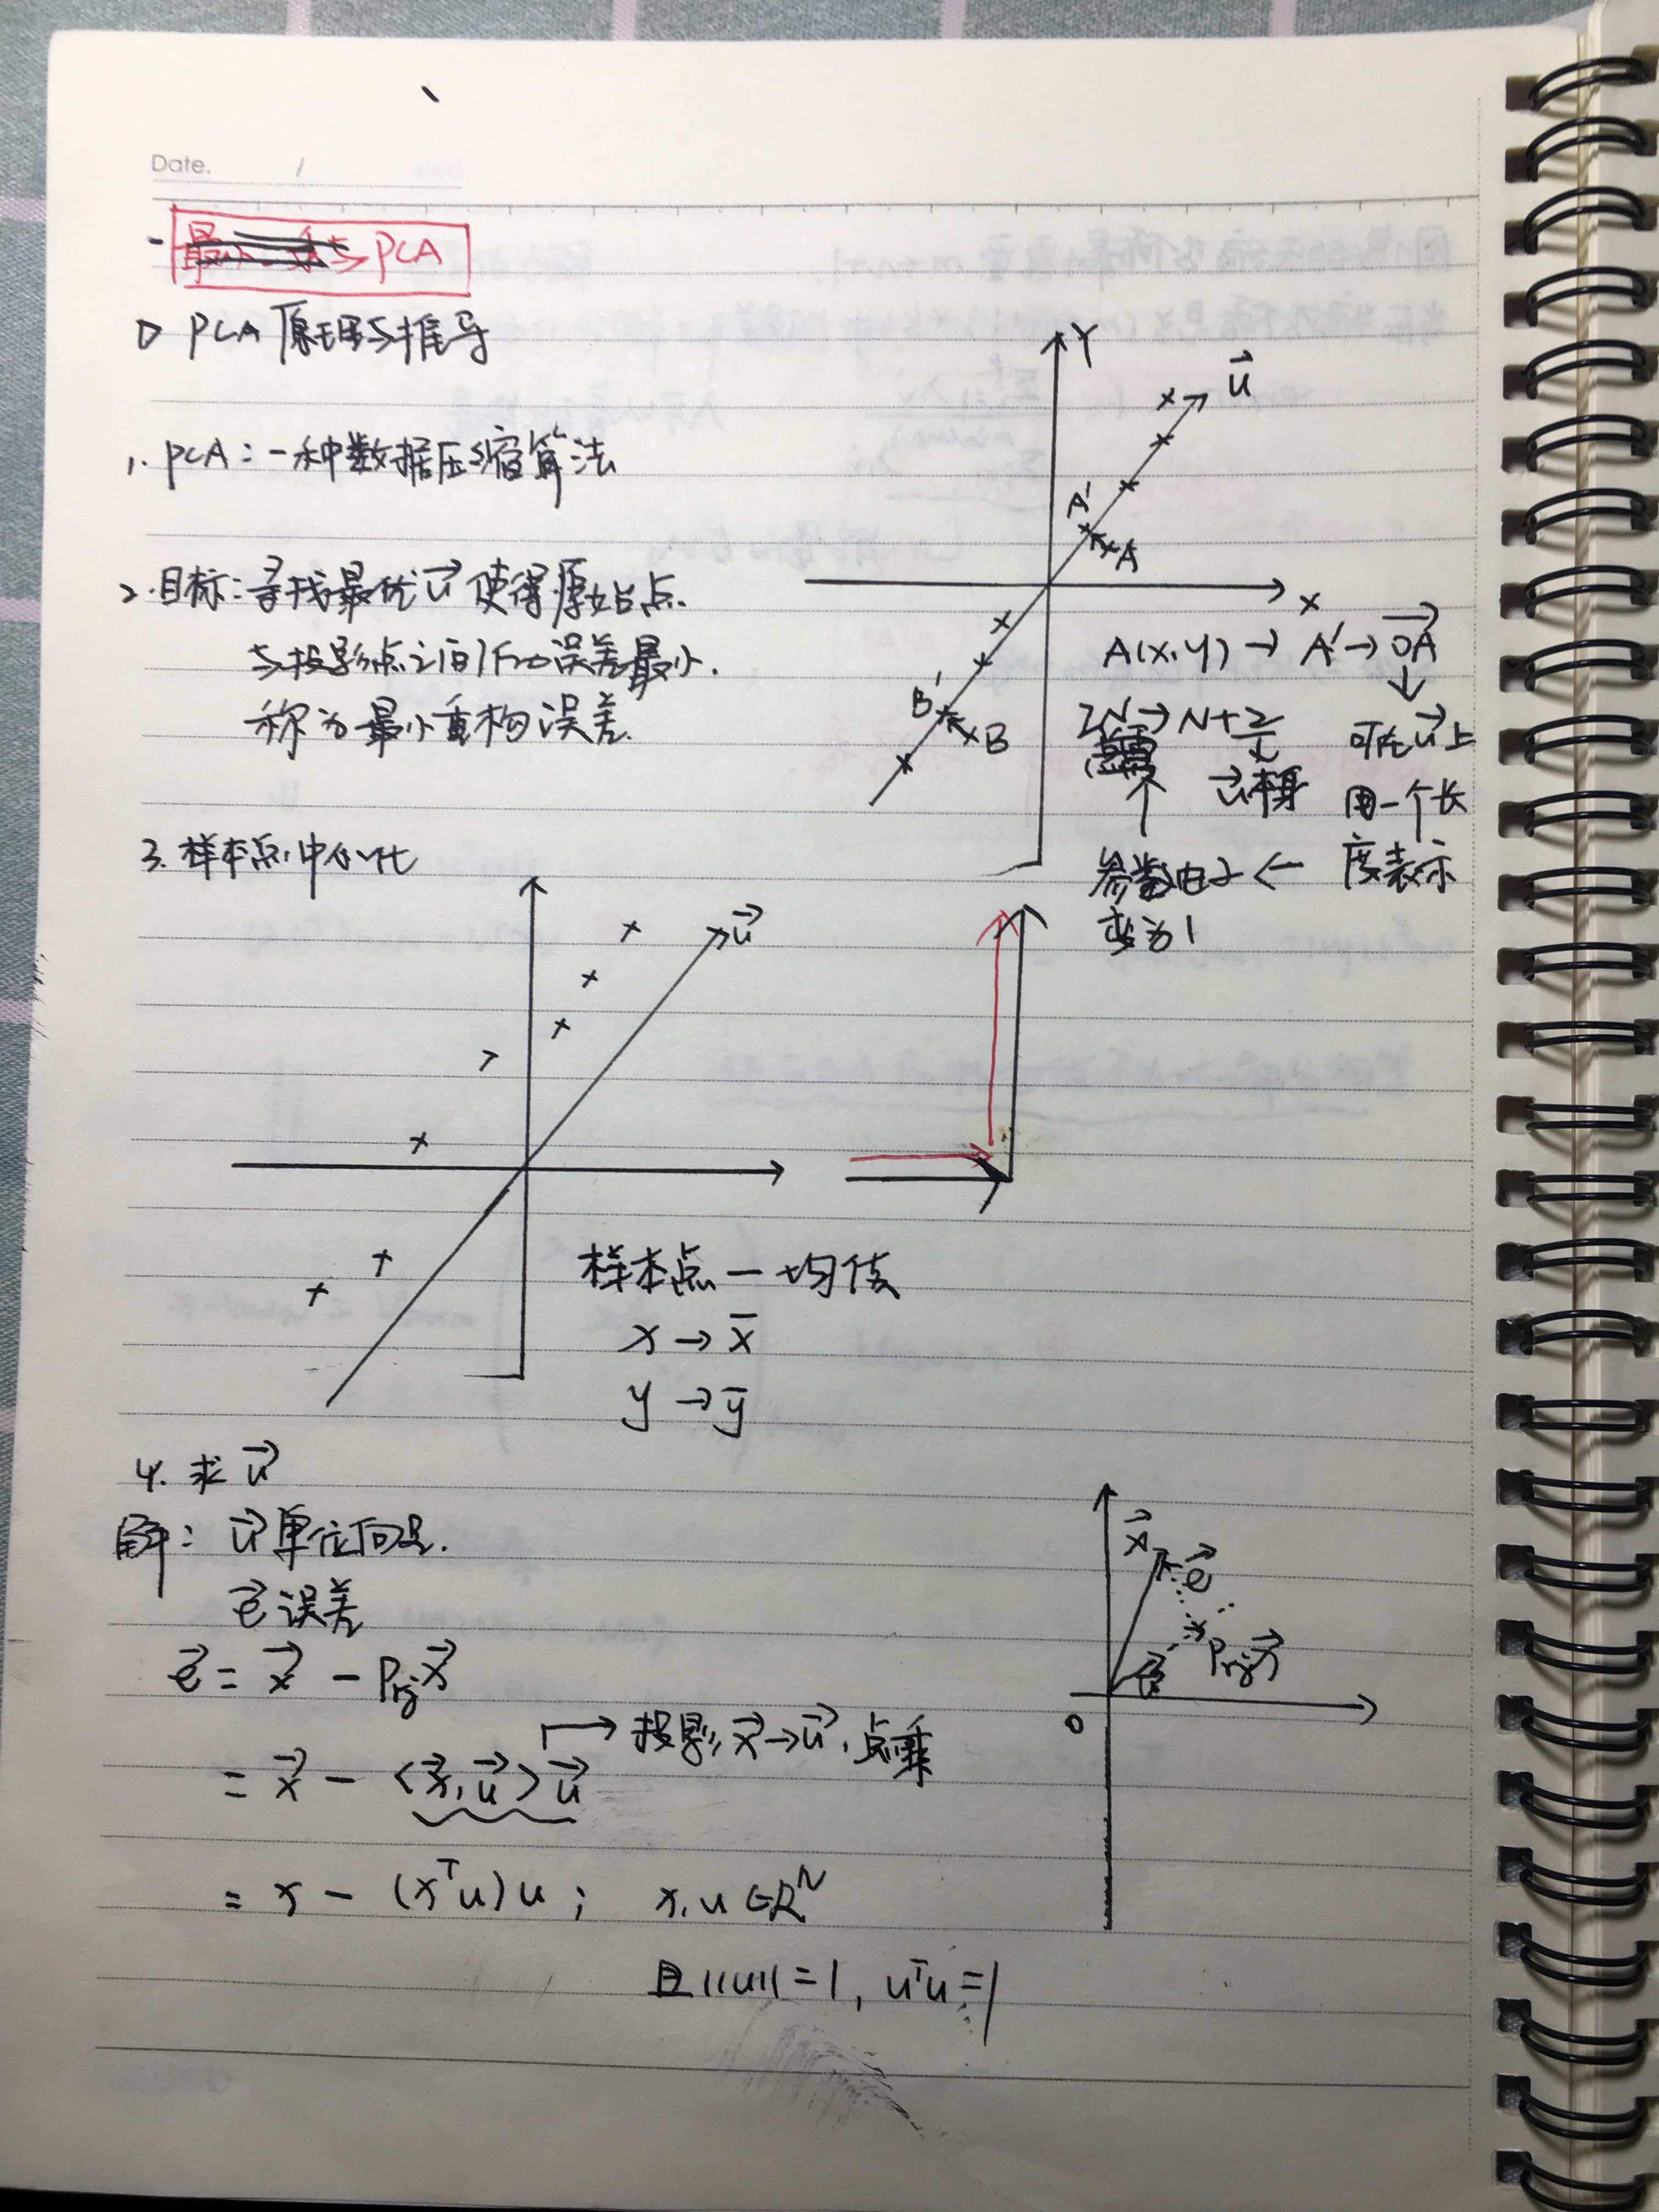 Date. /
PCA
1) PCA原理与推导
1. PCA:一种数据压缩算法
2.目标:寻找最优u使得原始点
与投影点之间的误差最小.
称为最小重构误差.
Y
u
A'
A
X
B'
B
A(x,y) → A' → OA
2N → N+2
u本身
可在u上
用一个长
度表示
参数由2 ←
变为1
3.样本点中心化
u
样本点 — 均值
x → x̄
y → ȳ
4. 求u
解: u单位向量.
e误差
e = x - Prjx
→ 投影, x→u, 点乘
= x - <x,u>u
= x - (xᵀu)u ; x,u∈Rᴺ
且||u||=1, uᵀu=1
x
e
Prjx
u
0